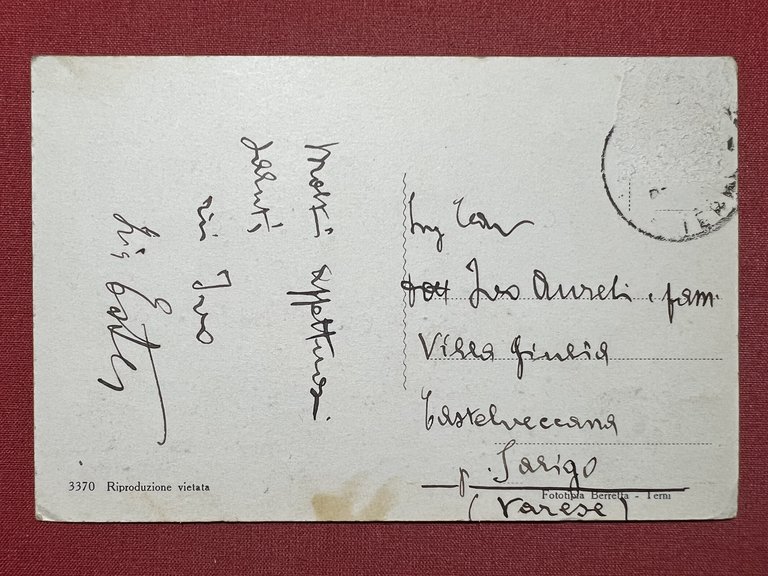 Molti affettuosi
saluti
zii Ivo
Ing
dott Ivo Aureli . fam.
Villa Giulia
Castelveccana
p. Sarigo
(Varese)
3370 Riproduzione vietata
Fototipia Berretta - Terni
TERNI